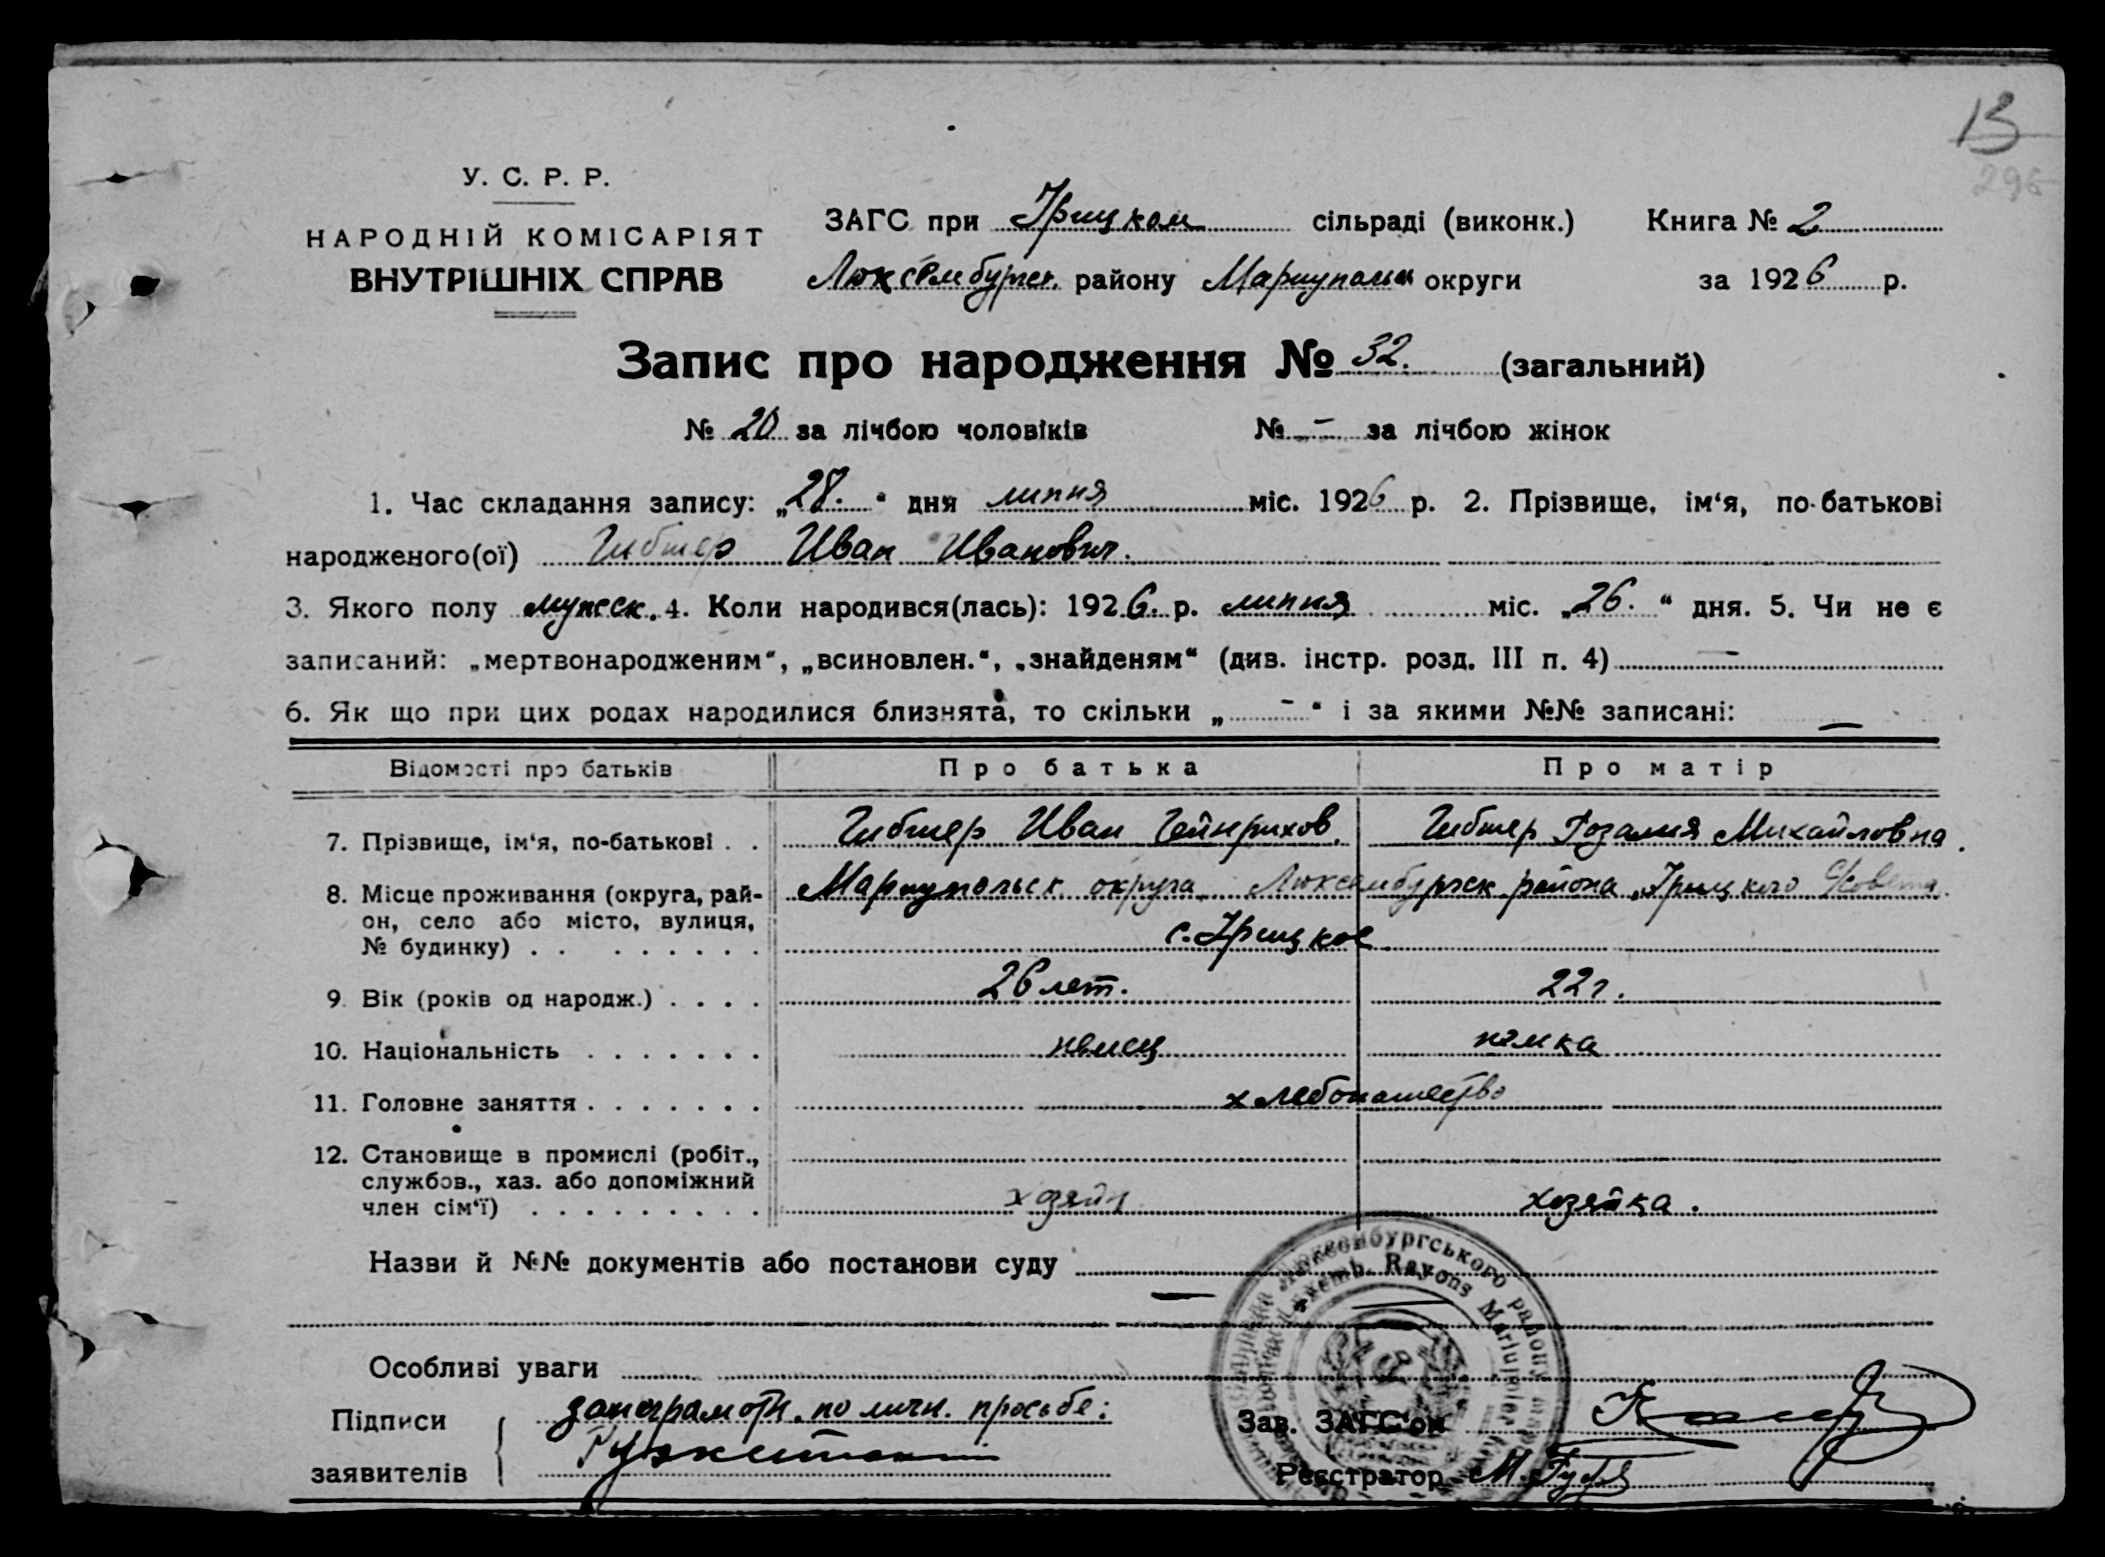 13
296
У. С. Р. Р.
НАРОДНІЙ КОМІСАРІЯТ
ВНУТРІШНІХ СПРАВ
ЗАГС при Урицком сільраді (виконк.) Книга № 2
Люксембургск. району Мариупольск округи за 1926 р.
Запис про народження № 32. (загальний)
№ 20 за лічбою чоловіків № - за лічбою жінок
1. Час складання запису: „28.“ дня липня міс. 1926 р. 2. Прізвище, ім‘я, по-батькові
народженого(ої) Гибнер Иван Иванович.
3. Якого полу мужеск. 4. Коли народився(лась): 1926. р. липня міс. „26.“ дня. 5. Чи не є
записаний: „мертвонародженим“, „всиновлен.“, „знайденям“ (див. інстр. розд. III п. 4) —
6. Як що при цих родах народилися близнята, то скільки „ - “ і за якими №№ записані: —
Відомості про батьків Про батька Про матір
7. Прізвище, ім‘я, по-батькові . . Гибнер Иван Гейнрихов. Гибнер Розалия Михайловна.
8. Місце проживання (округа, рай- Мариупольск округа Люксембургск района, Урицкого Совета.
он, село або місто, вулиця,
№ будинку) . . . . . . . . с. Урицкое
9. Вік (років од народж.) . . . . 26 лет. 22 г.
10. Національність . . . . . . . немец немка
11. Головне заняття . . . . . . . хлебопашество
12. Становище в промислі (робіт.,
службов., хаз. або допоміжний
член сім‘ї) . . . . . . . . . хозяин хозяйка.
Назви й №№ документів або постанови суду —
Особливі уваги
Підписи за неграмотн. по личн. просьбе:
заявителів
Зав. ЗАГС‘ом
Реєстратор М.
Люксенбургського району
Luxemb. Rayons Mariupoler